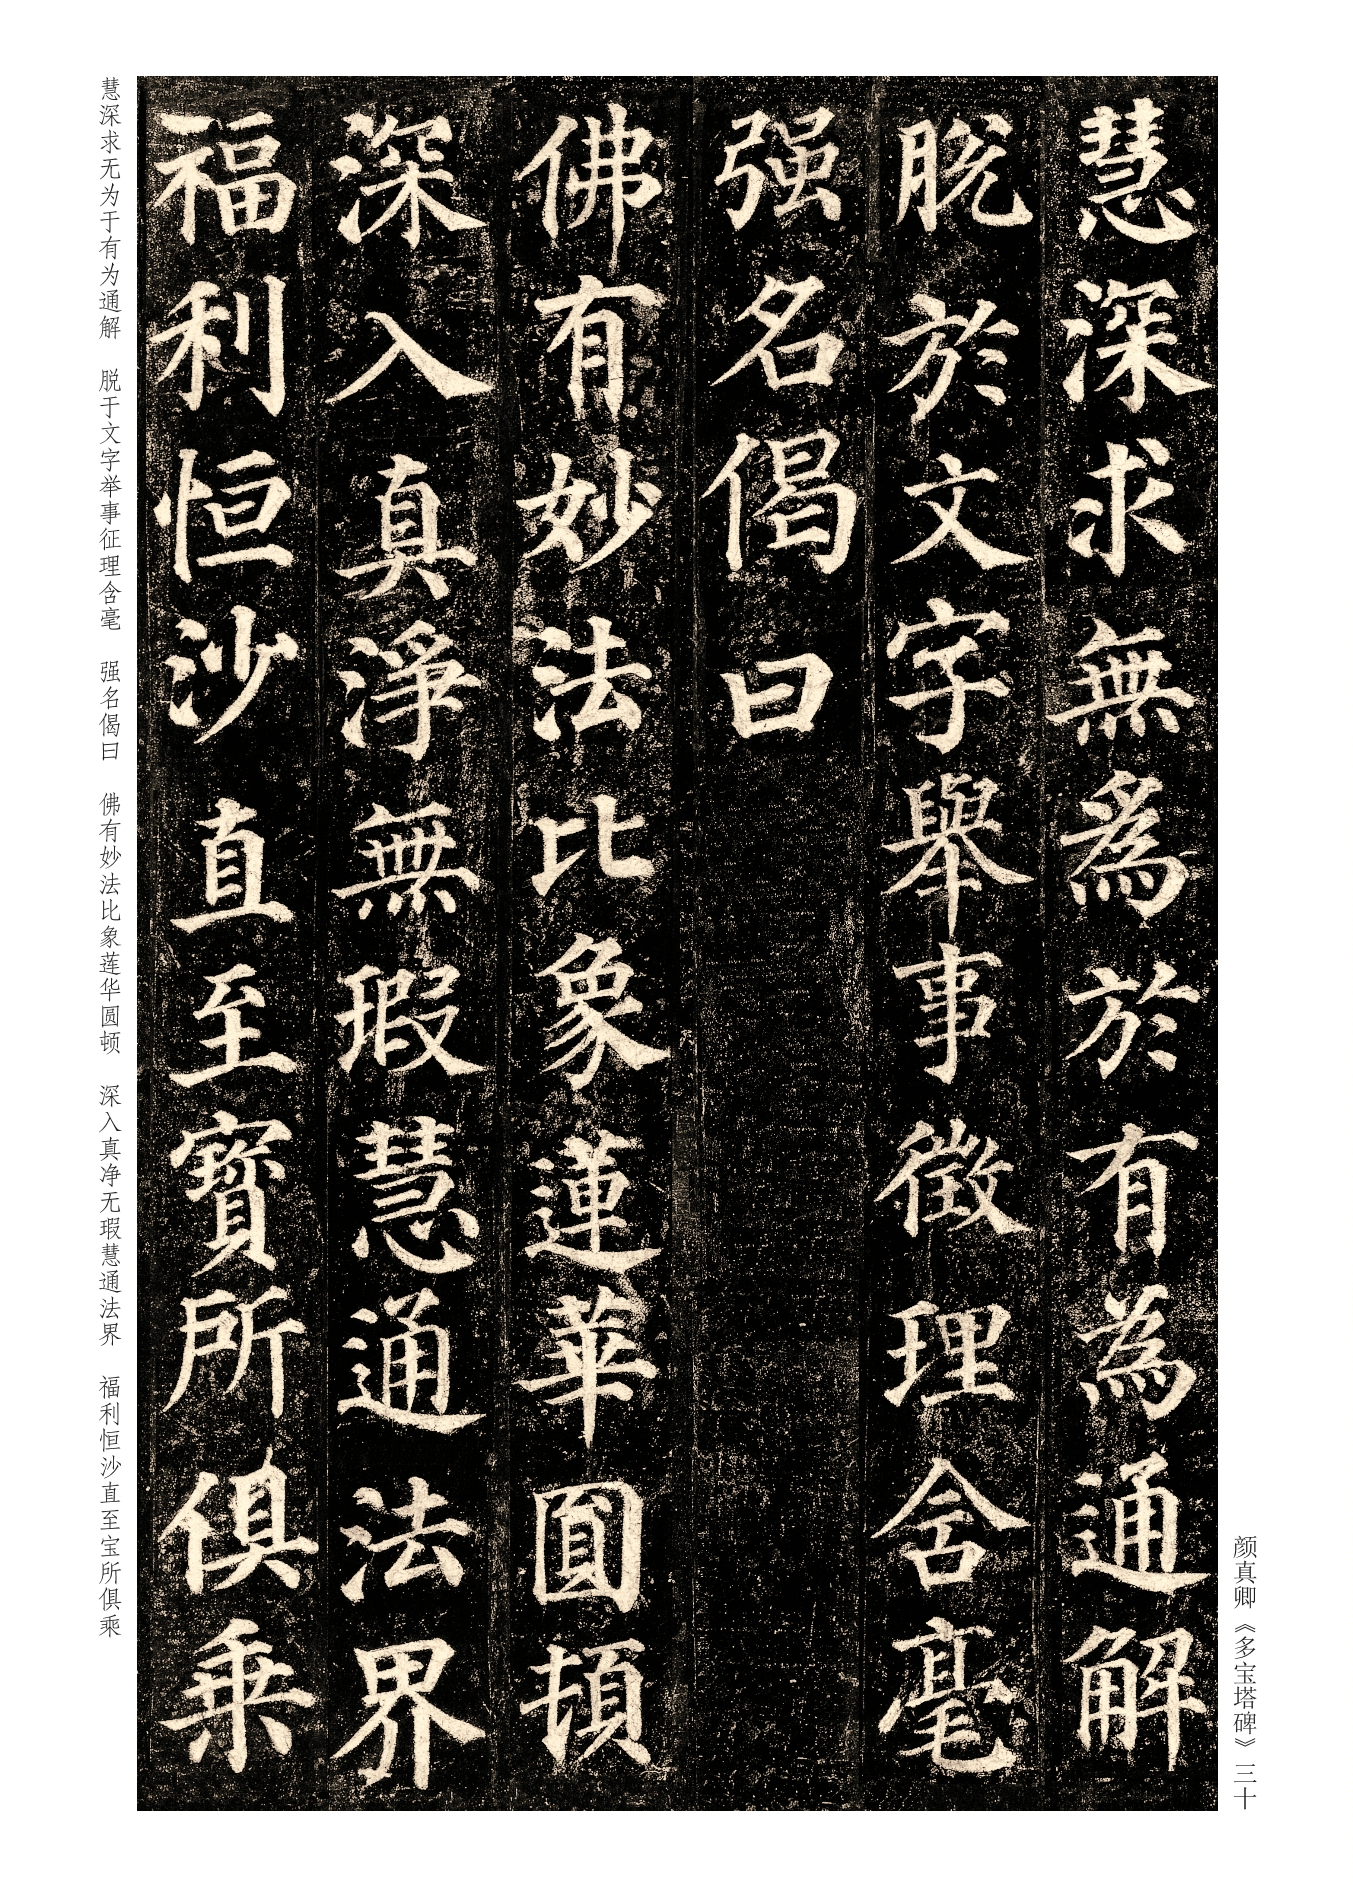 颜真卿《多宝塔碑》三十
慧深求無為於有為通解
脫於文字舉事徵理含毫
强名偈曰
佛有妙法比象蓮華圓頓
深入真淨無瑕慧通法界
福利恒沙直至寶所俱乘
慧深求无为于有为通解　脱于文字举事征理含毫　强名偈曰　佛有妙法比象莲华圆顿　深入真净无瑕慧通法界　福利恒沙直至宝所俱乘